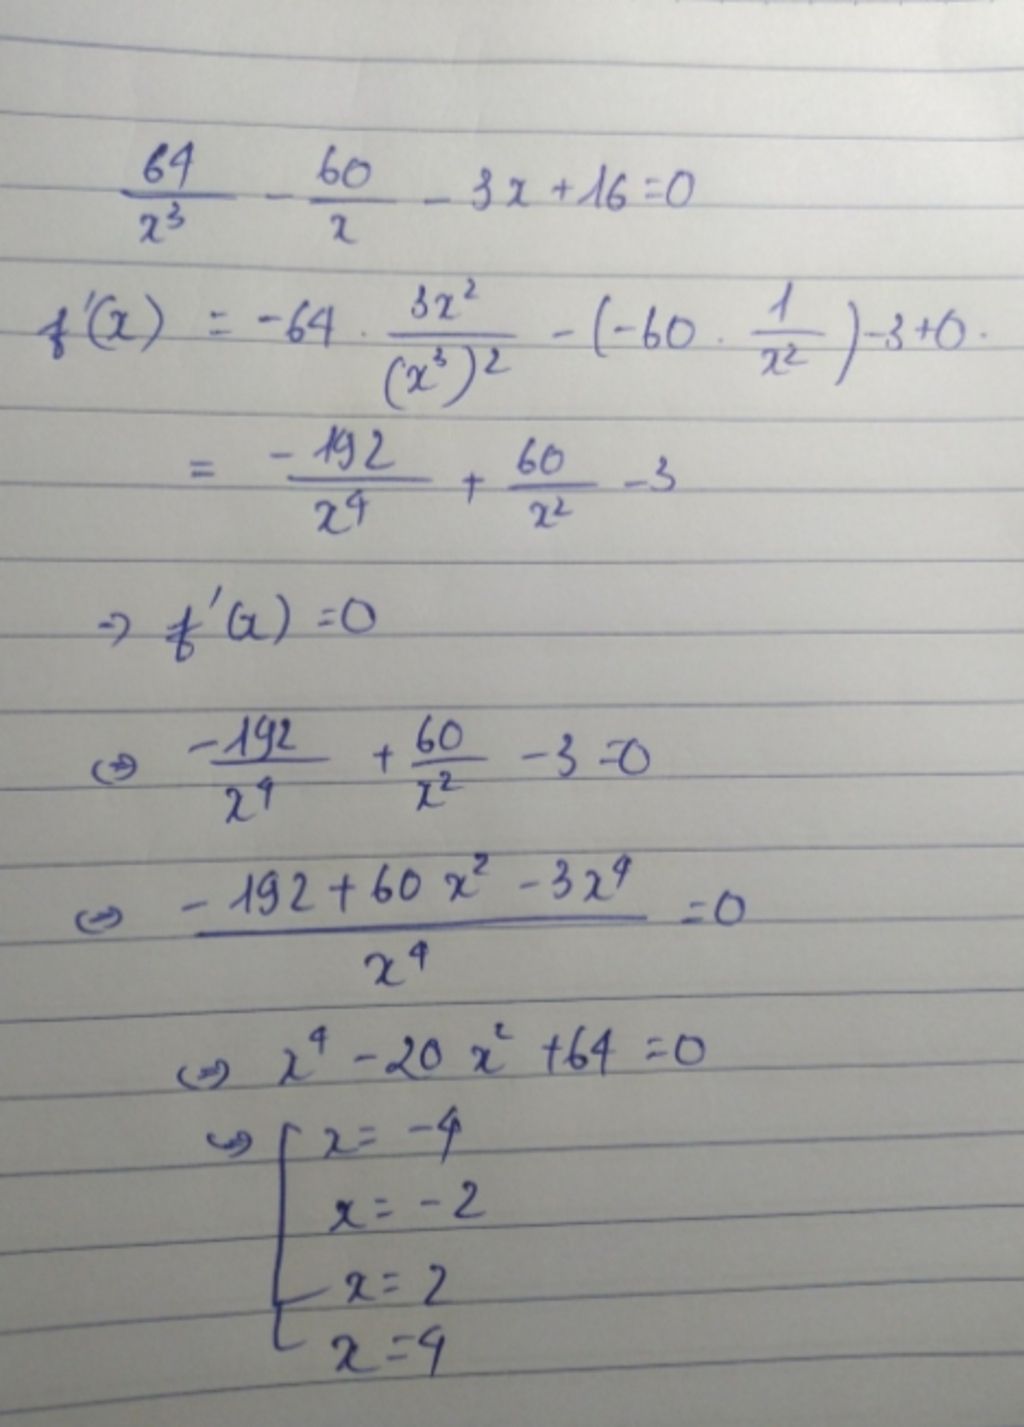 64/x³ - 60/x - 3x + 16 = 0
f'(x) = -64 . 3x²/(x³)² - (-60 . 1/x²) - 3 + 0.
= -192/x⁴ + 60/x² - 3
⇒ f'(x) = 0
⇔ -192/x⁴ + 60/x² - 3 = 0
⇔ (-192 + 60x² - 3x⁴)/x⁴ = 0
⇔ x⁴ - 20x² + 64 = 0
⇔ [ x = -4
x = -2
x = 2
x = 4